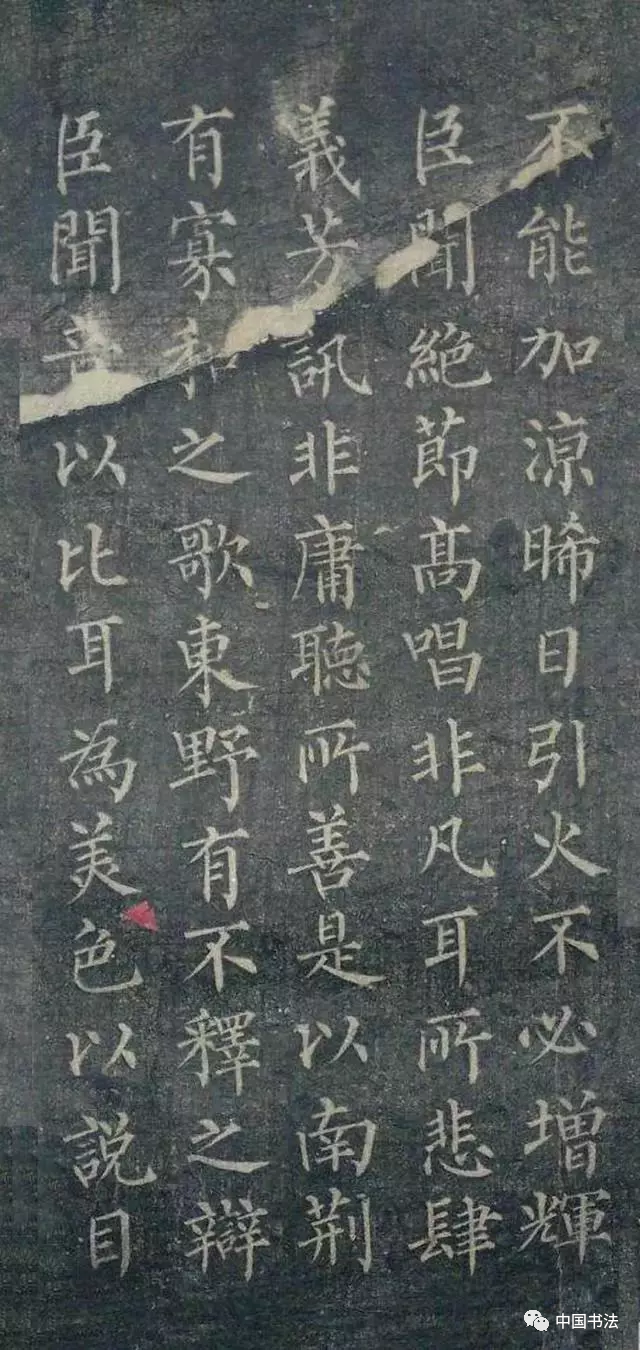 不能加涼晞日引火不必增輝
臣聞絶節髙唱非凡耳所悲肆
義芳訊非庸聽所善是以南荆
有寡和之歌東野有不釋之辯
臣聞音以比耳為美色以説目
中国书法